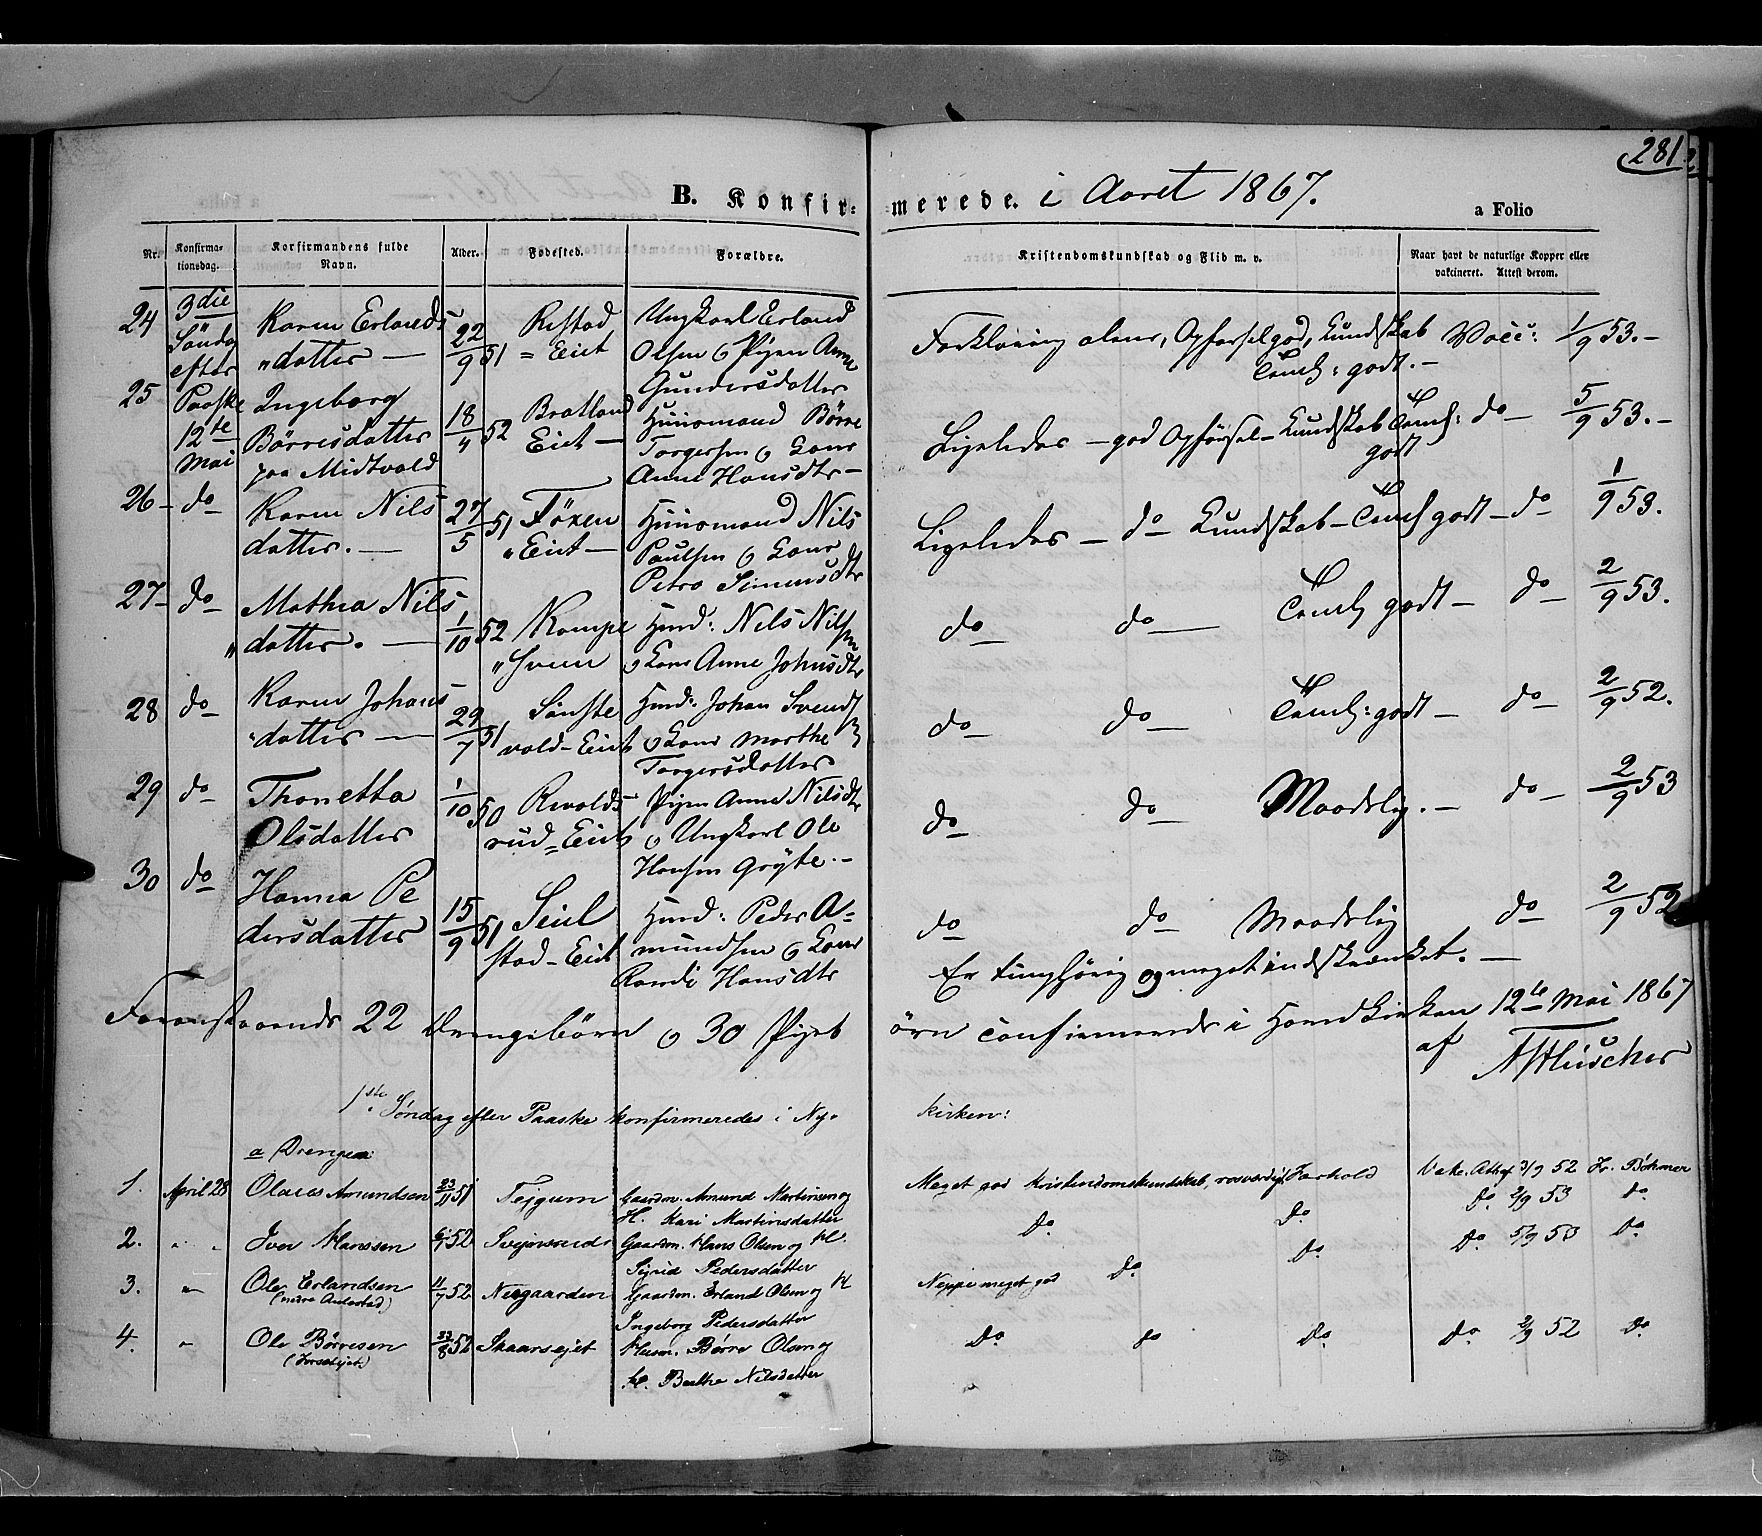 281
B. Konfir-
merede. i Aaret 1867.
a Folio
Nr.
Konfirma-
tionsdag.
Konfirmandens fulde
Navn.
Alder.
Fødested.
Forældre.
Kristendomskundskab og Flid m. v.
Naar havt de naturlige Kopper eller
vakcineret. Attest derom.
24 3die Søndag efter Karen Erlands
datter — 22/9 51 = Eiet
Ungkarl Erland
Olsen o Pigen Anne
Gundersdatter
Opførsel god, Kundskab
godt. — Vacc: 1/9 53. —
25 Paaske 12te Mai Ingeborg
Børresdatter
paa Midtvold
18/4 52 Bratland
Eiet —
Huusmand Børre
Torgersen o Kone
Anne Hansdtr —
Ligeledes — god Opførsel — Kundskab
godt do — 5/9 53. —
26 — do Karen Nils
datter. — 27/5 51
Eiet —
Huusmand Nils
Paulsen o Kone
Petro Simensdtr
Ligeledes — do Kundskab — godt — do 1/9 53.
27 — do Mathea Nils
datter. — 1/10 52 Kampe
Husd: Nils Nilsen
o Kone Anne Johnsdtr
do do — godt — do 2/9 53.
28 do Karen Johans
datter — 29/7 51 Sønste
vold — Eiet
Husd: Johan Svends
o Kone Marthe
Torgersdatter
do do godt — do 2/9 52.
29 do Thonetta
Olsdatter
1/10 50
rud = Eiet
Pigen Anne Nilsdtr
o Ungkarl Ole
Hansen Grÿte. —
do do Maadelig. — do — 2/9 53
30 do Hanna Pe
dersdatter 15/9 51
stad — Eiet
Husd: Peder A=
mundsen o Kone
Randi Hansdtr
do do Maadelig do 2/9 52
Er tunghørig og meget indskrænket. —
Foranstaaende 22 Drengebørn o 30 Pigeb
ørn confirmerede i Hovedkirken 12te Mai 1867
af
1ste Søndag efter Paaske konfirmeredes i Ny-
kirken:
a Drenge:
1. April 28 Olaus Amundsen 23/11 51 Fejgum Gaardm. Amund Martinsen og
H. Kari Martinsdatter
Meget god Kristendomskundskab, rosværdigt Forhold Vakc. Attest 3/9 52 Fr. Bøhmer
2. " " Iver Hanssen 52 Gaardm. Hans Olsen og H.
Sigrid Pedersdatter
Do. Do. Do. 2/9 53 Do.
3. " Ole Erlandsen
(nedre Aulestad)
11/7 52 Nergaarden Gaardm. Erland Olsen og H
Ingeborg Pedersdatter
Neppe meget god Do. Do. Do. 5/9 53 Do.
4. " Ole Børresen
52 Skaarsejet Husm. Børre Olsen og
H. Berthe Nilsdatter
Do. do Do. Do. 2/9 52 Do.